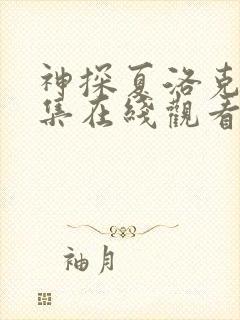 神探夏洛克
集在綫觀看
袖月